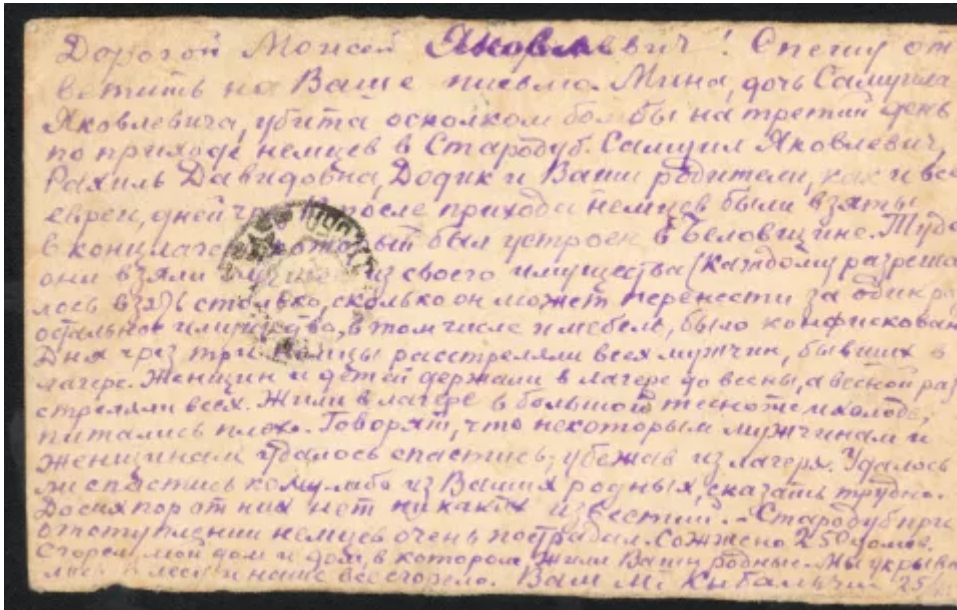 Дорогой Моисей Яковлевич! Спешу от
ветить на Ваше письмо. Мина, дочь Самуила
Яковлевича, убита осколком бомбы на третий день
по приходе немцев в Стародуб. Самуил Яковлевич,
Рахиль Давидовна, Додик и Ваши родители, как и все
евреи, дней после прихода немцев были взяты
в концлагерь, который был устроен в Беловщине. Туда
они взяли из своего имущества (каждому разреша
лось взять столько, сколько он может перенести за один ра
остальное имущество, в том числе и мебель, было конфискован
Дня чрез три немцы расстреляли всех мужчин, бывших в
лагере. Женщин и детей держали в лагере до весны, а весной рас
стреляли всех. Жили в лагере в большой тесноте и холоде,
питались плохо. Говорят, что некоторым мужчинам и
женщинам удалось спастись, убежав из лагеря. Удалось
ли спастись кому либо из Ваших родных, сказать трудно.
До сих пор от них нет никаких известий. – Стародуб при
отступлении немцев очень пострадал. Сожжено 250 домов.
Сгорел мой дом и дом, в котором жили Ваши родные. Мы укрыва
лись в лесу и наше все сгорело. Ваш М. Кибальчич 25/